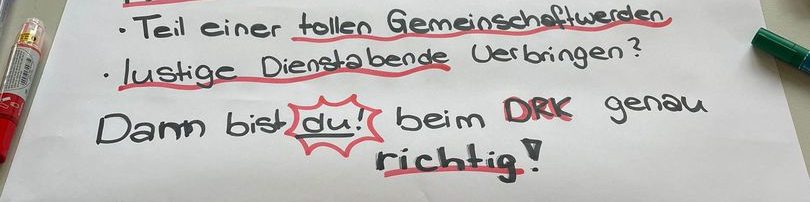 · Teil einer tollen Gemeinschaftwerden
· lustige Dienstabende Verbringen?
Dann bist du! beim DRK genau
richtig!